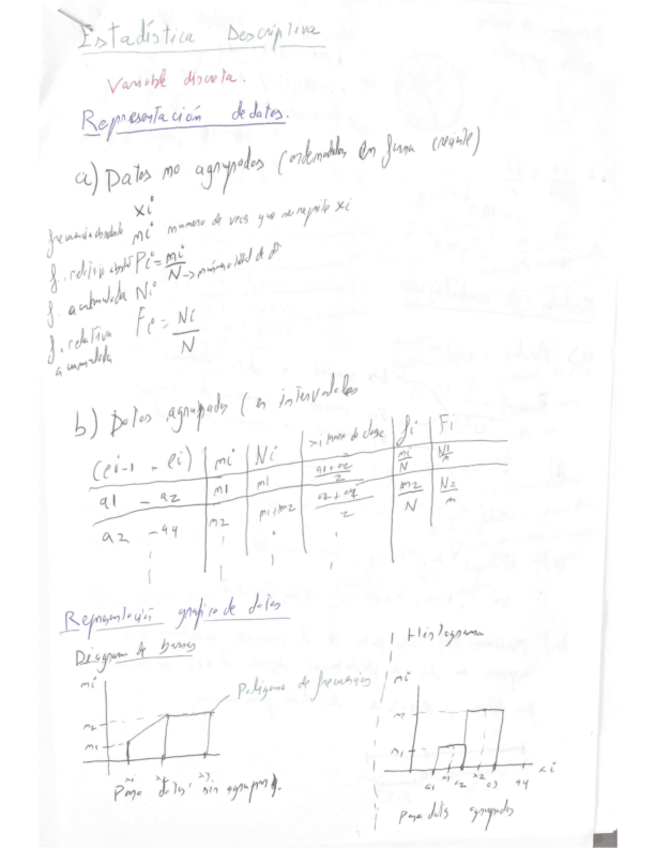 Estadística Descriptiva
Variable discreta.
Representación de datos.
a) Datos no agrupados (ordenados en forma creciente)
xi
frecuencia absoluta ni numero de veces que se repite xi
f. relativa Pi = ni/N → número total de
f. acumulada Ni
f. relativa acumulada Fi = Ni/N
b) Datos agrupados (en intervalos
(ei-1 - ei) | ni | Ni | xi marca de clase | fi | Fi
a1 - a2 | n1 | n1 | a1+a2/2 | ni/N | N1/n
a2 - a4 | n2 | n1+n2 | 2 | n2/N | N2/n
Representación grafica de datos
Diagrama de barras
Poligono de frecuencias
ni
n2
n1
x1 x2 x3
Para datos sin agrupar.
Histograma
ni
n1
a1 x1 a2 x2 a3 a4 xi
Para datos agrupados